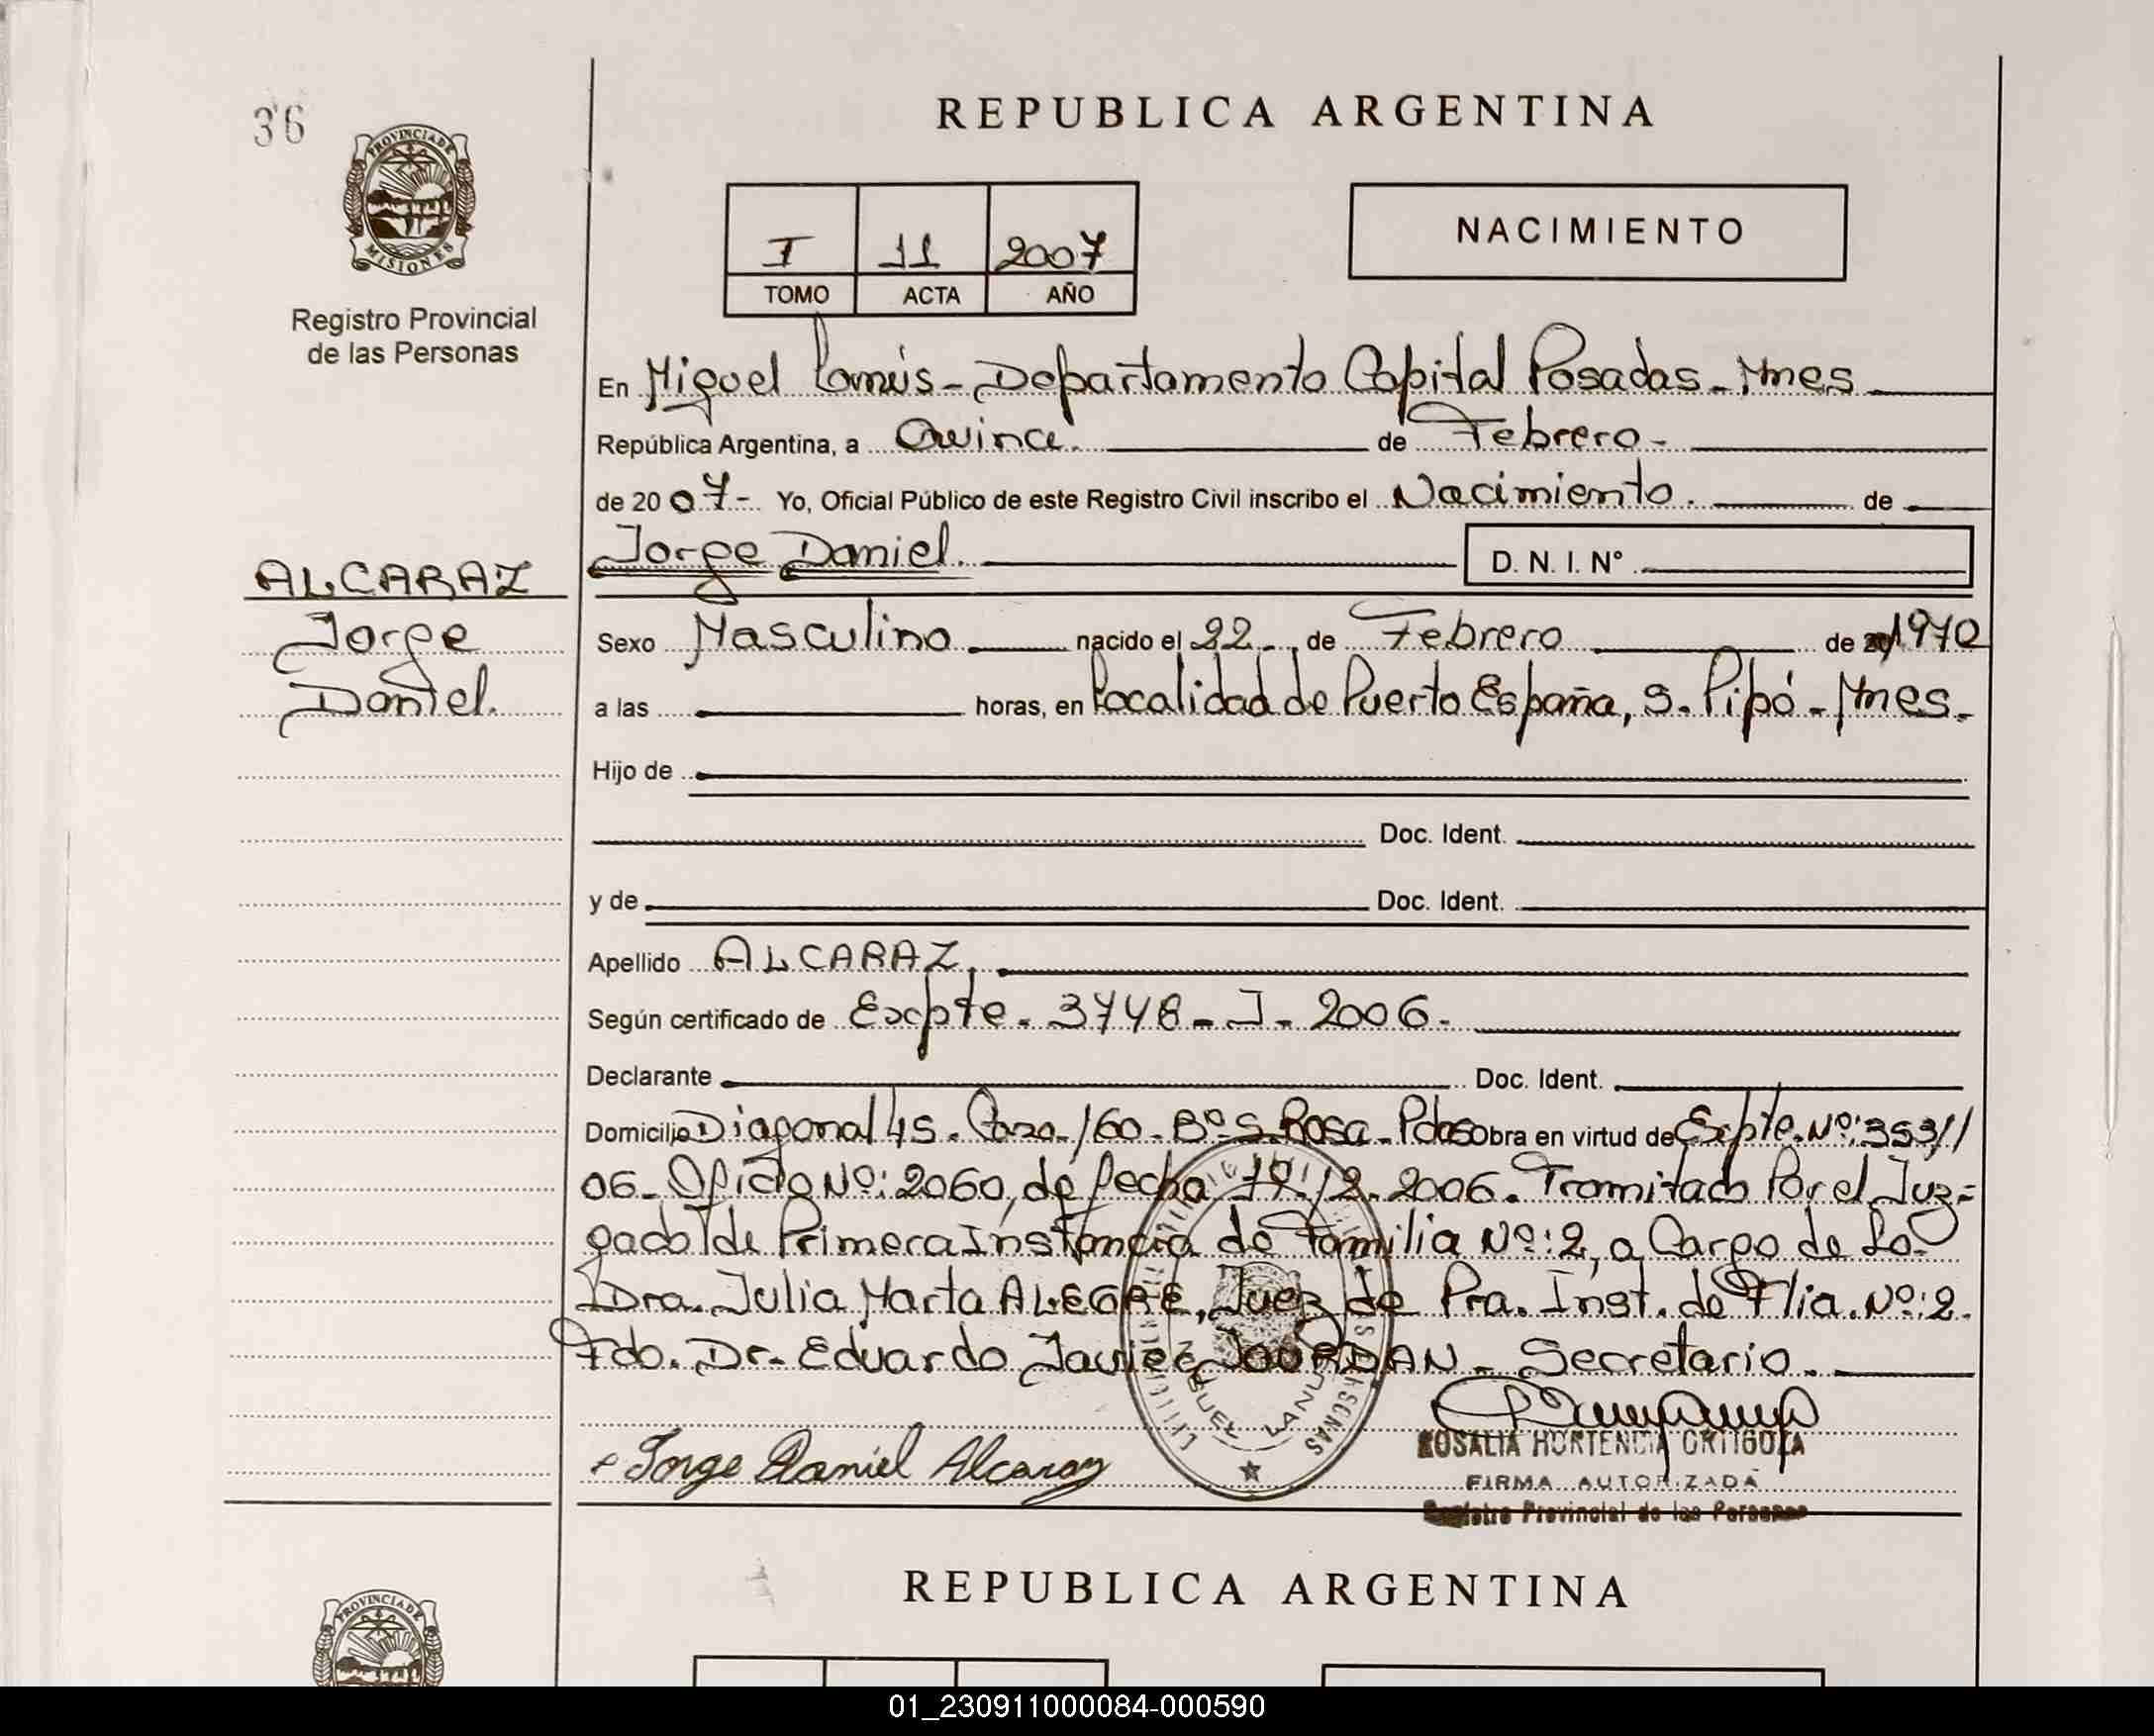 36
PROVINCIA DE
MISIONES
Registro Provincial
de las Personas
REPUBLICA ARGENTINA
I 11 2007
TOMO ACTA AÑO
NACIMIENTO
En Miguel Lanús - Departamento Capital Posadas - Mnes
República Argentina, a Quince. de Febrero -
de 20 07 - Yo, Oficial Público de este Registro Civil inscribo el Nacimiento. de
Jorge Daniel. D. N. I. N°
ALCARAZ
Jorge
Daniel.
Sexo Masculino nacido el 22 - de Febrero de 1970
a las horas, en Localidad de Puerto España, S. Pipó - Mnes.
Hijo de
Doc. Ident.
y de Doc. Ident.
Apellido ALCARAZ.
Según certificado de Expte. 3748 - J - 2006.
Declarante Doc. Ident.
Domicilio Diagonal 45. Casa 160. Bº S. Rosa - Pdas obra en virtud de Expte. Nº: 353//
06 - Oficio Nº: 2060, de fecha 2006. Tramitado Por el Juz=
gado de Primera Instancia de Familia Nº: 2, a Cargo de La
Dra. Julia Marta ALEGRE, Juez de Pra. Inst. de Flia. Nº: 2.
Fdo. Dr. Eduardo Javier JOURDAN - Secretario.
MIGUEL LANUS
Jorge Daniel Alcaraz
ROSALIA HORTENCIA ORTIGOZA
FIRMA AUTORIZADA
Registro Provincial de las Personas
REPUBLICA ARGENTINA
PROVINCIA DE
01_230911000084-000590